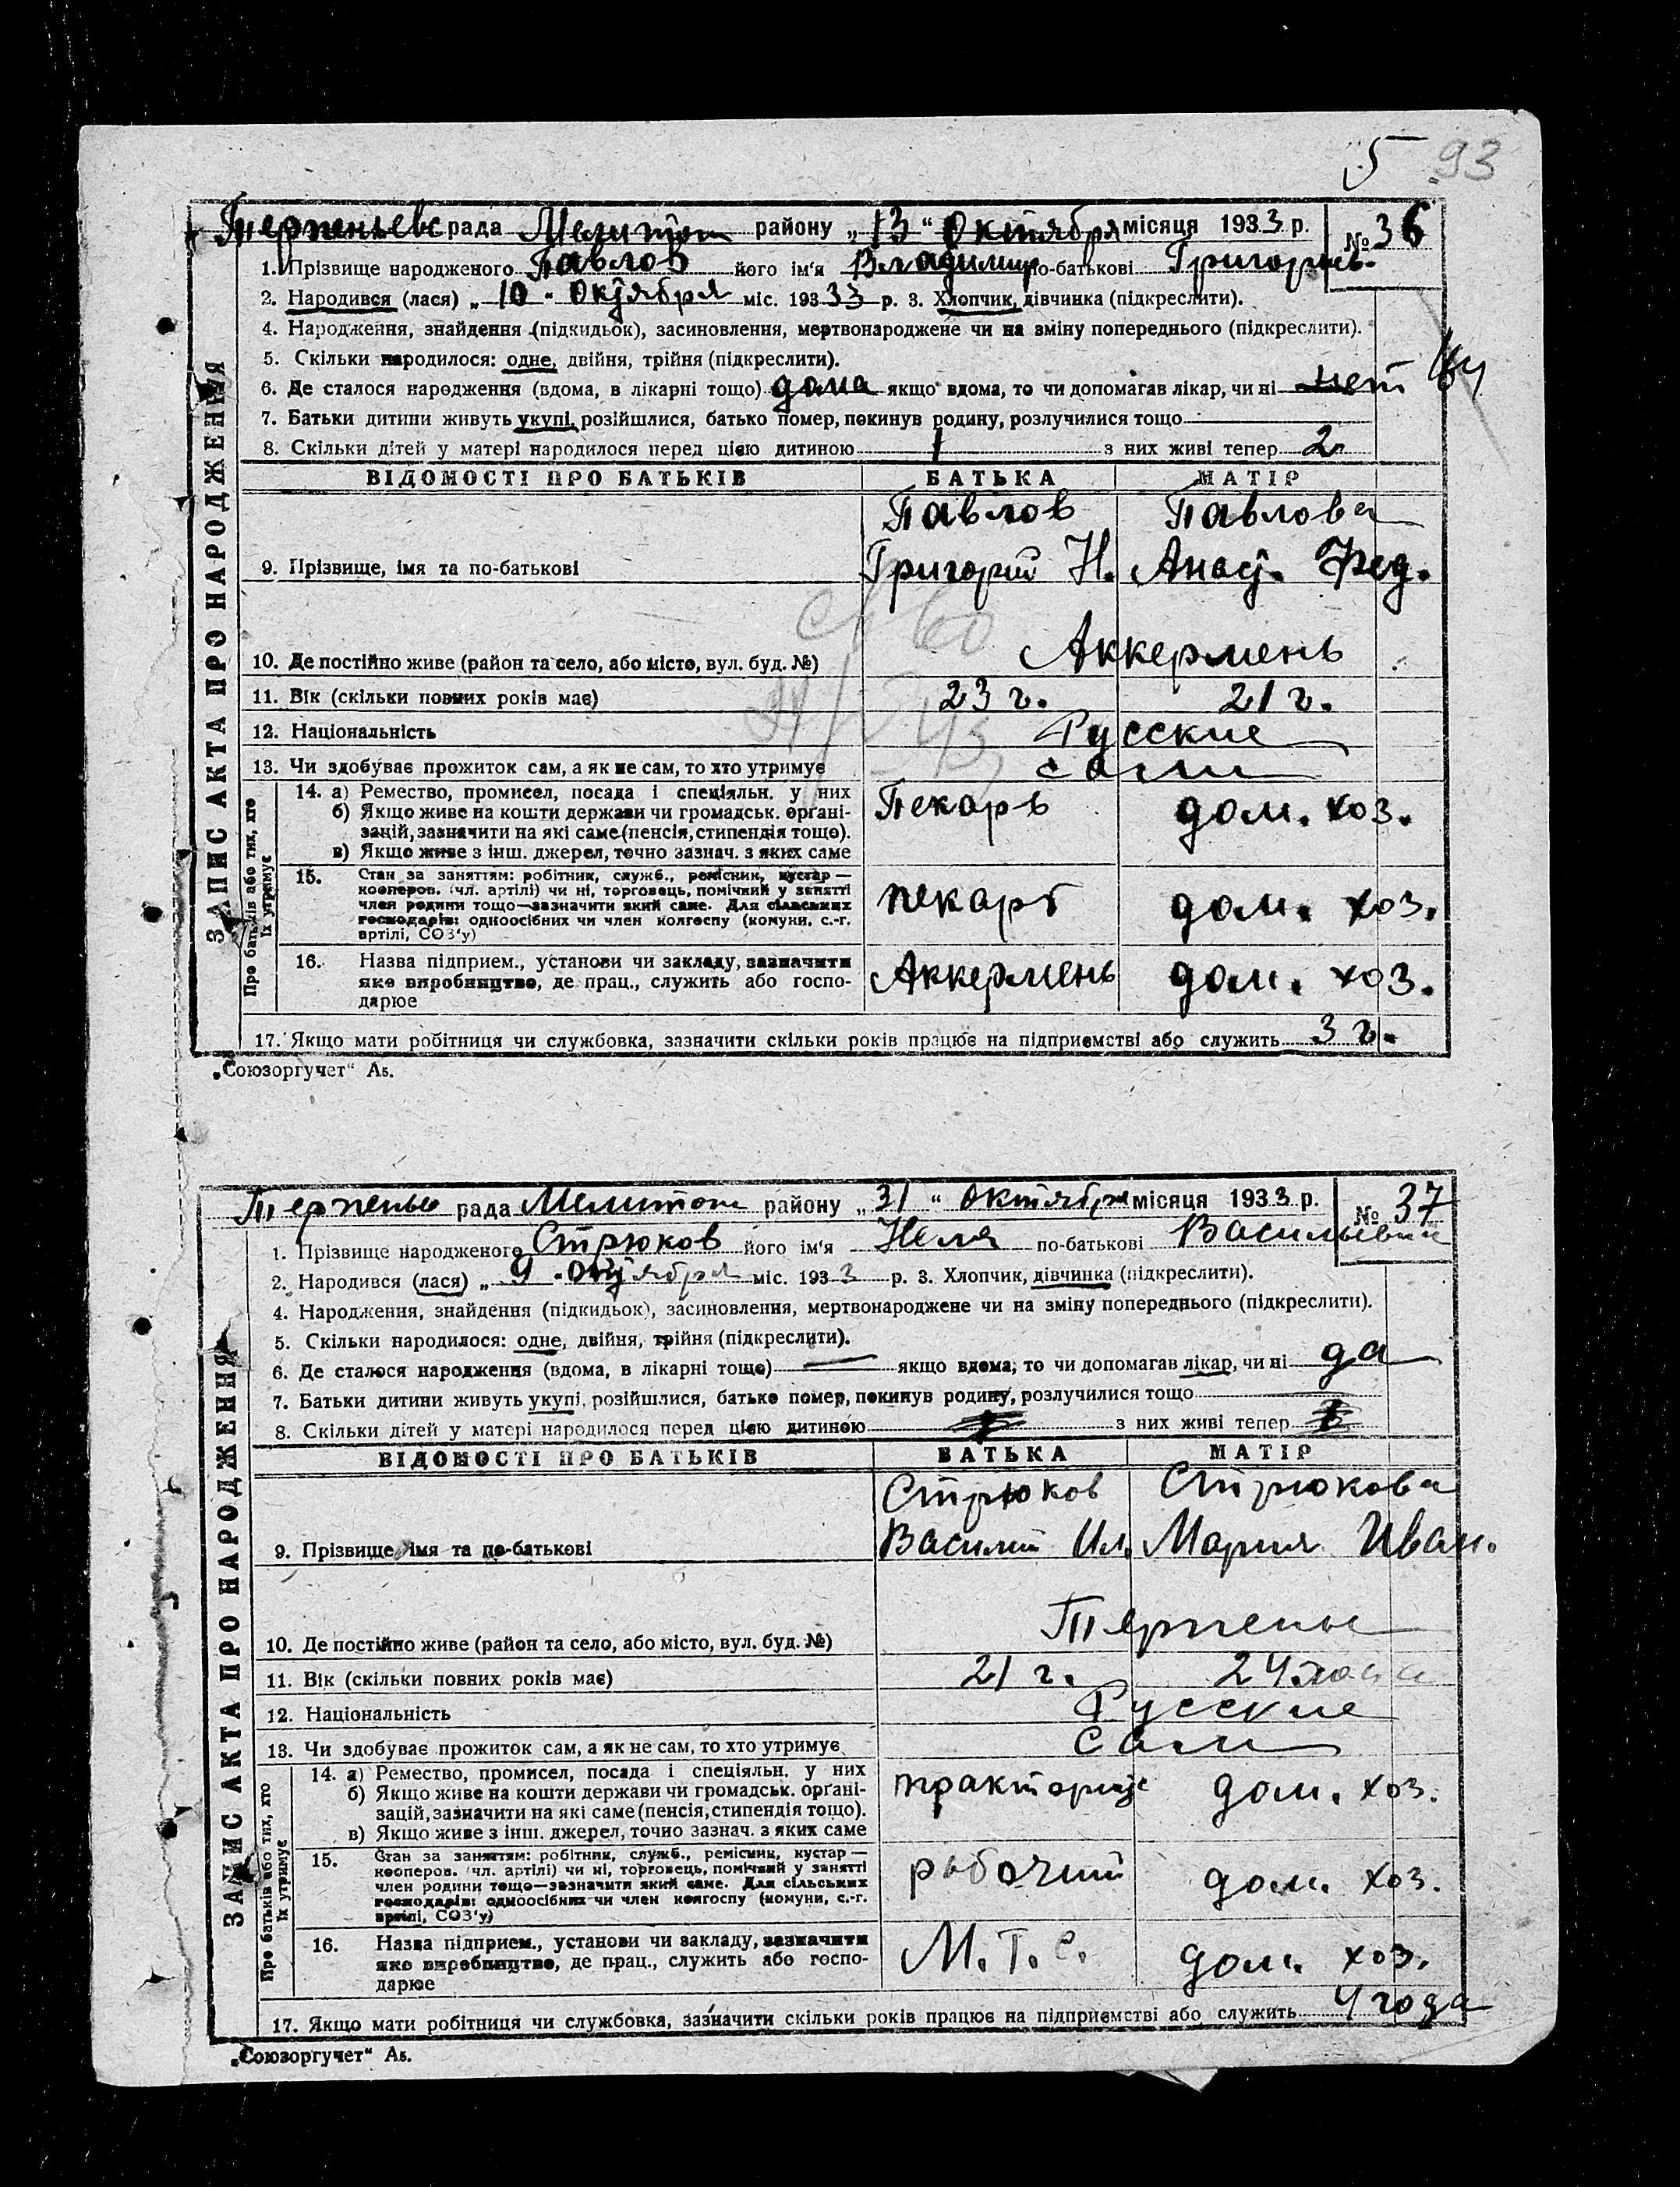 5 93
Терпеньевс рада Мелитоп району „13“ Октября місяця 1933 р. № 36
1. Прізвище народженого Павлов його ім'я Владимир по-батькові Григорьев.
2. Народився (лася) „10“ Октября міс. 193 33 р. 3. Хлопчик, дівчинка (підкреслити).
4. Народження, знайдення (підкидьок), засиновлення, мертвонароджене чи на зміну попереднього (підкреслити).
5. Скільки народилося: одне, двійня, трійня (підкреслити).
6. Де сталося народження (вдома, в лікарні тощо) дома якщо вдома, то чи допомагав лікар, чи ні нет
7. Батьки дитини живуть укупі, розійшлися, батько помер, покинув родину, розлучилися тощо
8. Скільки дітей у матері народилося перед цією дитиною 1 з них живі тепер 2
ВІДОМОСТІ ПРО БАТЬКІВ БАТЬКА МАТІР
Павлов Павлова
9. Прізвище, імя та по-батькові Григорий Н. Анас. Фед.
10. Де постійно живе (район та село, або місто, вул. буд. №) Аккермень
11. Вік (скільки повних років має) 23 г. 21 г.
12. Національність Русские
13. Чи здобуває прожиток сам, а як не сам, то хто утримує сами
14. а) Ремество, промисел, посада і спеціяльн. у них Пекарь дом. хоз.
б) Якщо живе на кошти держави чи громадськ. орґані-
зацій, зазначити на які саме (пенсія, стипендія тощо).
в) Якщо живе з інш. джерел, точно зазнач. з яких саме
15. Стан за заняттям: робітник, служб., ремісник, кустар — пекарь дом. хоз.
кооперов. (чл. артілі) чи ні, торговець, помічний у занятті
член родини тощо—зазначити який саме. Для сільських
господарів: одноосібних чи член колгоспу (комуни, с.-г.
артілі, СОЗ'у)
16. Назва підприєм., установи чи закладу, зазначити Аккермень дом. хоз.
яке виробництво, де прац., служить або госпо-
дарює
17. Якщо мати робітниця чи службовка, зазначити скільки років працює на підприємстві або служить 3 г.
ЗАПИС АКТА ПРО НАРОДЖЕННЯ
Про батьків або тих, хто
їх утримує
„Союзоргучет“ Аб.
Терпенье рада Мелитоп району „31“ октября місяця 1933 р. № 37
1. Прізвище народженого Стрюков його ім'я Неля по-батькові Васильевич
2. Народився (лася) „9“ октября міс. 1933 р. 3. Хлопчик, дівчинка (підкреслити).
4. Народження, знайдення (підкидьок), засиновлення, мертвонароджене чи на зміну попереднього (підкреслити).
5. Скільки народилося: одне, двійня, трійня (підкреслити).
6. Де сталося народження (вдома, в лікарні тощо) — якщо вдома, то чи допомагав лікар, чи ні да
7. Батьки дитини живуть укупі, розійшлися, батько помер, покинув родину, розлучилися тощо
8. Скільки дітей у матері народилося перед цією дитиною з них живі тепер
ВІДОМОСТІ ПРО БАТЬКІВ БАТЬКА МАТІР
Стрюков Стрюкова
9. Прізвище імя та по-батькові Василий Ил. Мария Иван.
10. Де постійно живе (район та село, або місто, вул. буд. №) Терпенье
11. Вік (скільки повних років має) 21 г. 24 года
12. Національність Русские
13. Чи здобуває прожиток сам, а як не сам, то хто утримує сами
14. а) Ремество, промисел, посада і спеціяльн. у них тракторист дом. хоз.
б) Якщо живе на кошти держави чи громадськ. орґані-
зацій, зазначити на які саме (пенсія, стипендія тощо).
в) Якщо живе з інш. джерел, точно зазнач. з яких саме
15. Стан за заняттям: робітник, служб., ремісник, кустар — рабочий дом. хоз.
кооперов. (чл. артілі) чи ні, торговець, помічний у занятті
член родини тощо—зазначити який саме. Для сільських
господарів: одноосібних чи член колгоспу (комуни, с.-г.
артілі, СОЗ'у)
16. Назва підприєм., установи чи закладу, зазначити М.Т.С. дом. хоз.
яке виробництво, де прац., служить або госпо-
дарює
17. Якщо мати робітниця чи службовка, зазначити скільки років працює на підприємстві або служить 4 года
ЗАПИС АКТА ПРО НАРОДЖЕННЯ
Про батьків або тих, хто
їх утримує
„Союзоргучет“ Аб.